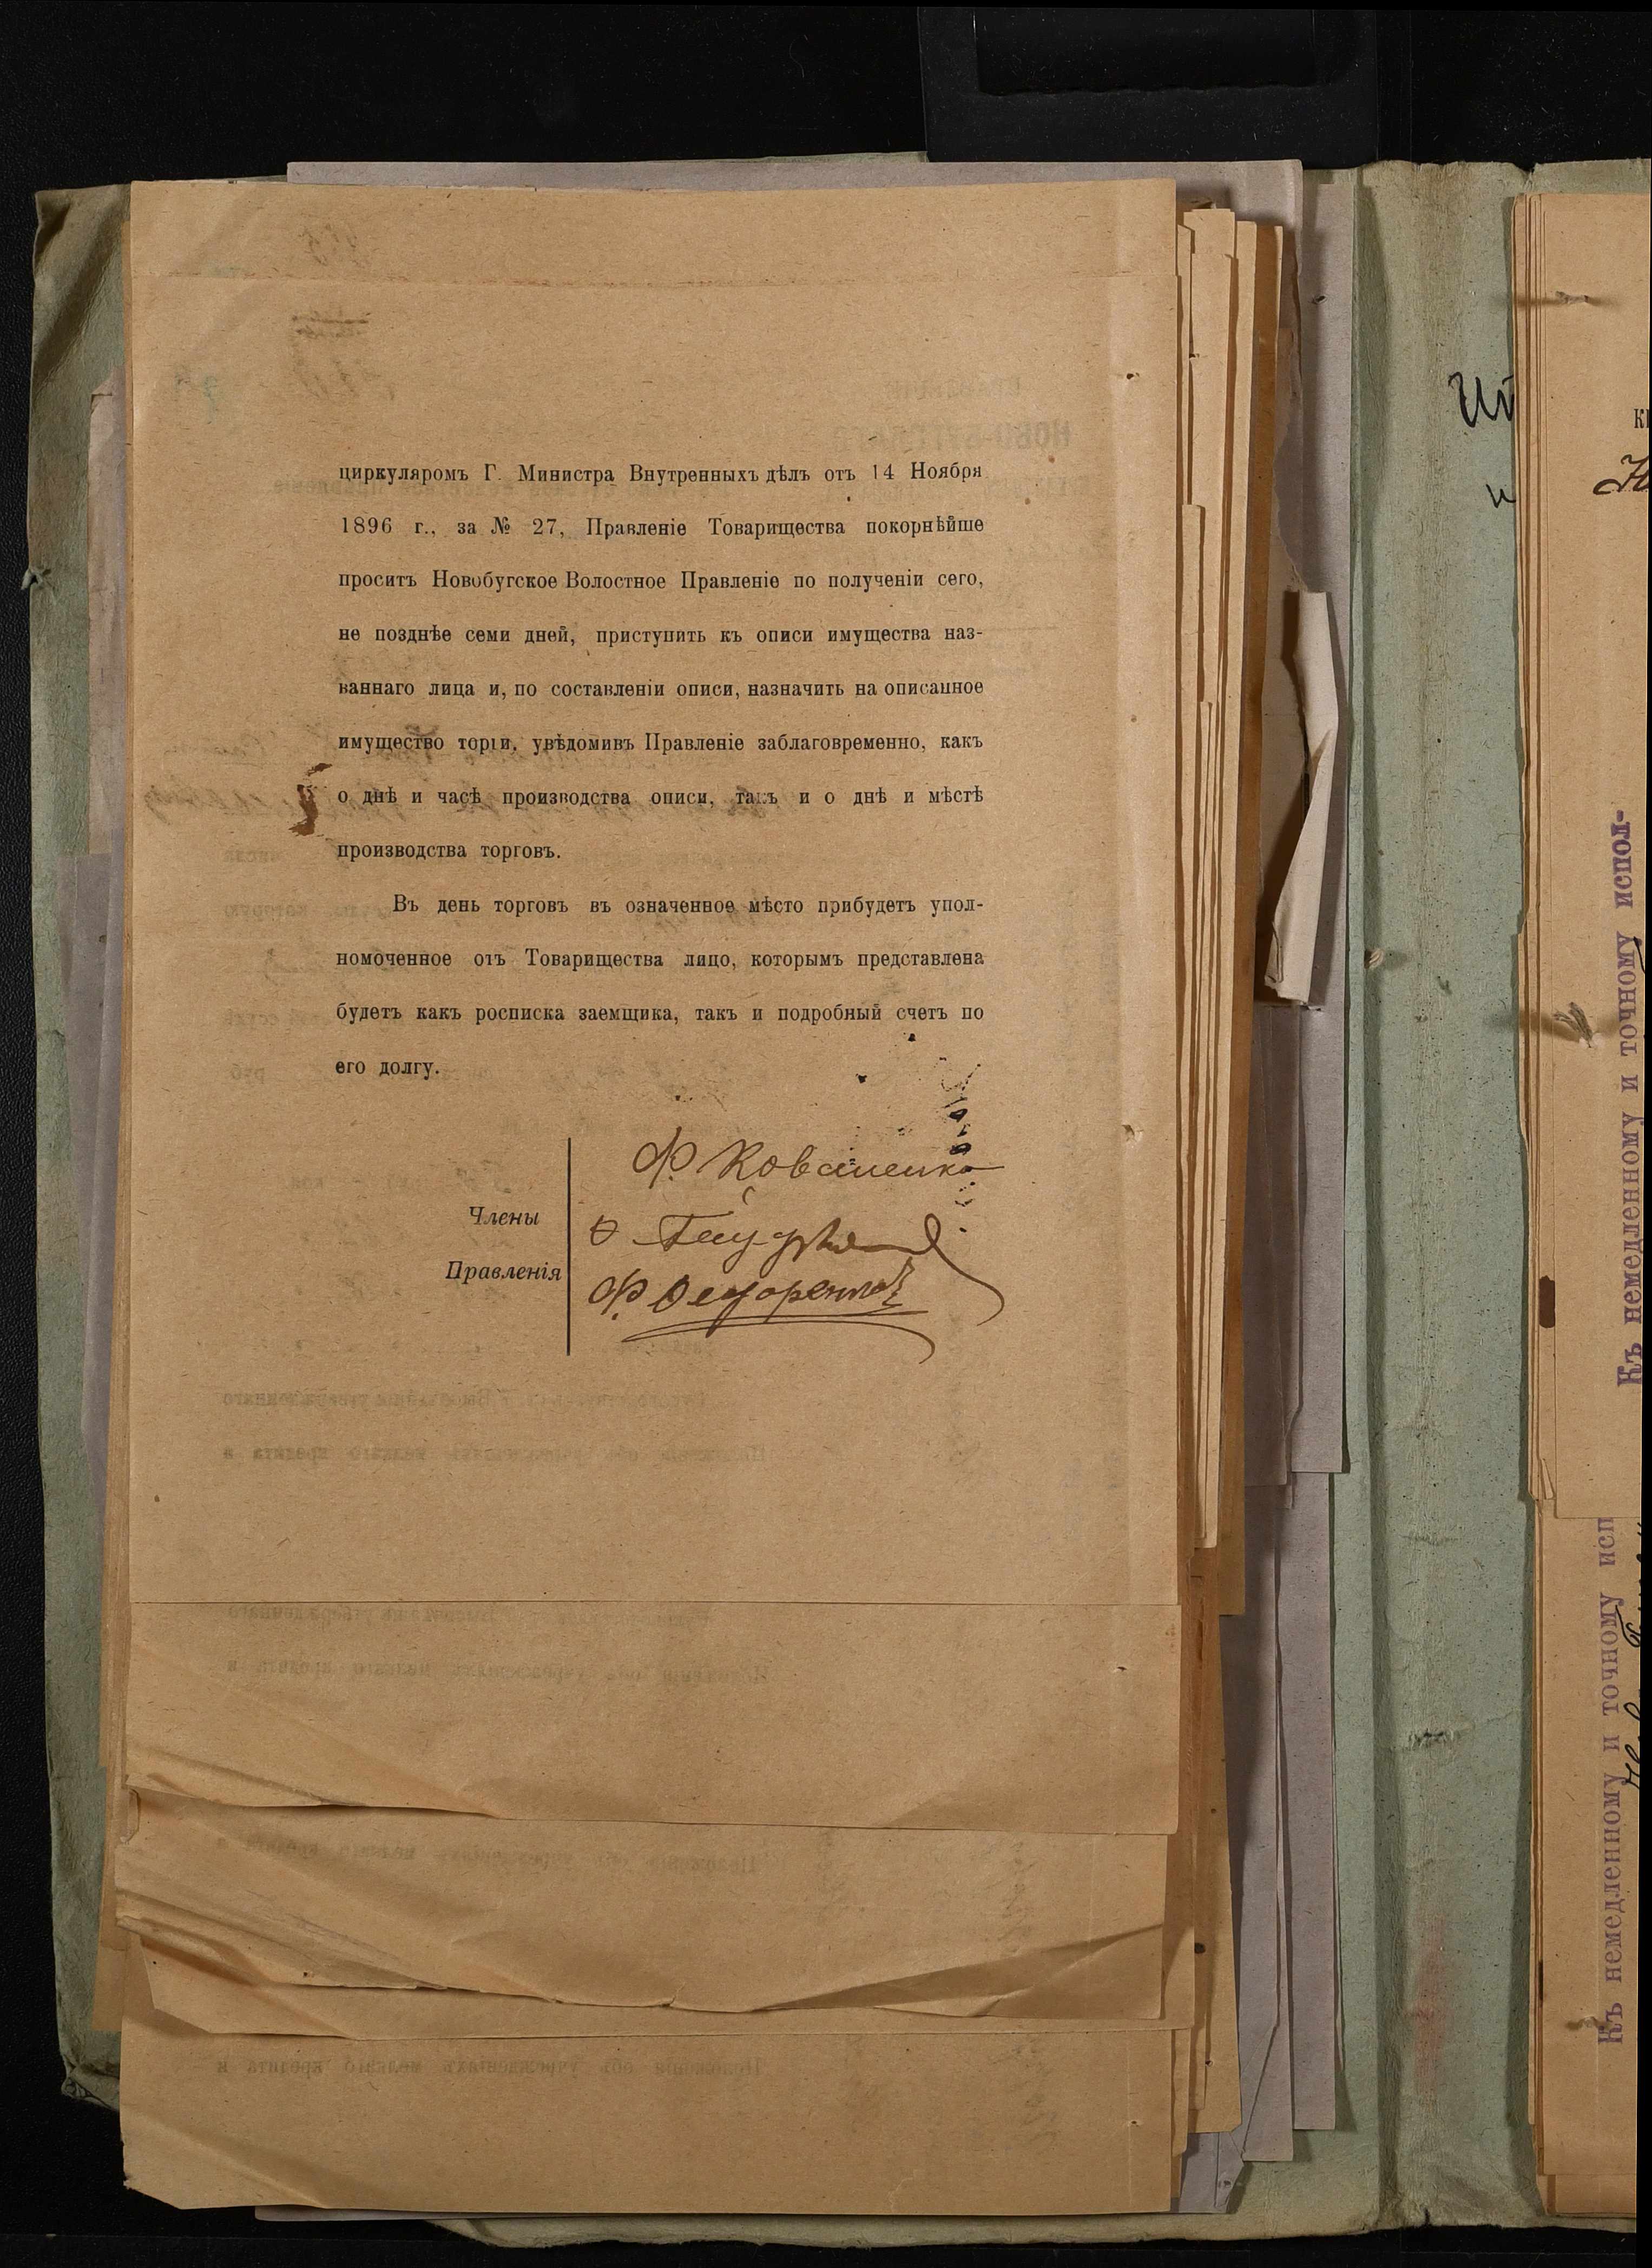 циркуляромъ Г. Министра Внутренныхъ дѣлъ отъ 14 Ноября
1896 г., за № 27, Правленіе Товарищества покорнѣйше
проситъ Новобугское Волостное Правленіе по полученіи сего,
не позднѣе семи дней, приступить къ описи имущества наз-
ваннаго лица и, по составленіи описи, назначить на описанное
имущество торги, увѣдомивъ Правленіе заблаговременно, какъ
о днѣ и часѣ производства описи, такъ и о днѣ и мѣстѣ
производства торговъ.
Въ день торговъ въ означенное мѣсто прибудетъ упол-
номоченное отъ Товарищества лицо, которымъ представлена
будетъ какъ росписка заемщика, такъ и подробный счетъ по
его долгу.
Ф. Коваленко
Члены
Правленія
Къ немедленному и точному испол-
Къ немедленному и точному исп